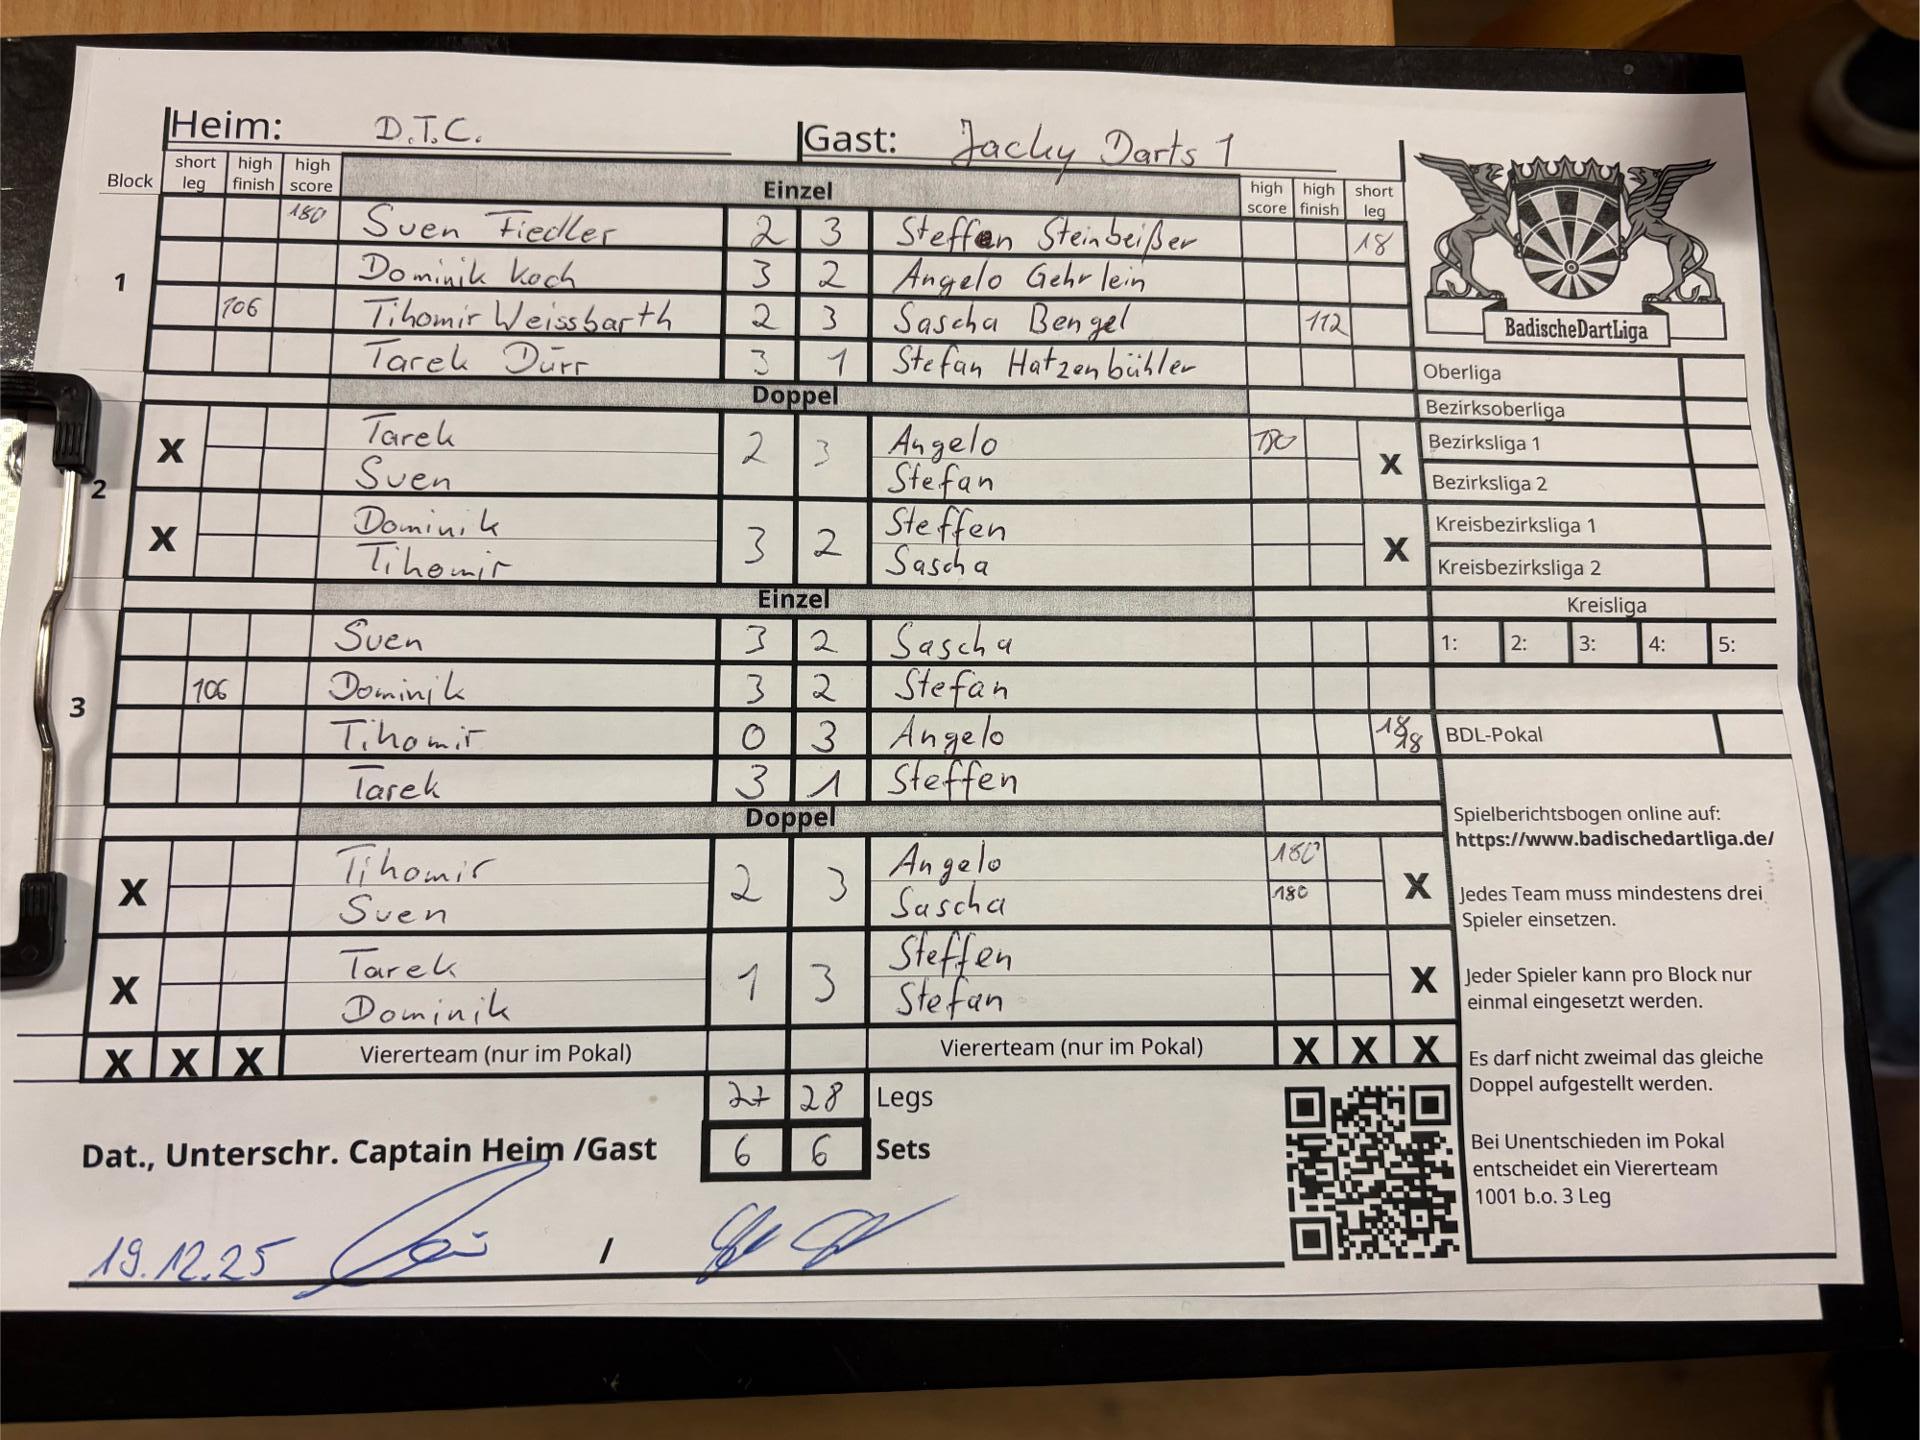 Heim: D.T.C. Gast: Jacky Darts 1
Block short leg high finish high score Einzel high score high finish short leg
180 Sven Fiedler 2 3 Steffen Steinbeißer 18
1 Dominik Koch 3 2 Angelo Gehrlein
106 Tihomir Weissbarth 2 3 Sascha Bengel 112
Tarek Dürr 3 1 Stefan Hatzenbühler
Doppel
X Tarek 2 3 Angelo 180 X
Sven Stefan
2
X Dominik 3 2 Steffen X
Tihomir Sascha
Einzel
Sven 3 2 Sascha
106 Dominik 3 2 Stefan
3
Tihomir 0 3 Angelo 18 18
Tarek 3 1 Steffen
Doppel
X Tihomir 2 3 Angelo 180 X
Sven Sascha 180
X Tarek 1 3 Steffen X
Dominik Stefan
X X X Viererteam (nur im Pokal) Viererteam (nur im Pokal) X X X
27 28 Legs
6 6 Sets
Dat., Unterschr. Captain Heim /Gast
19.12.25 /
BadischeDartLiga
Oberliga
Bezirksoberliga
Bezirksliga 1
Bezirksliga 2
Kreisbezirksliga 1
Kreisbezirksliga 2
Kreisliga
1: 2: 3: 4: 5:
BDL-Pokal
Spielberichtsbogen online auf:
https://www.badischedartliga.de/
Jedes Team muss mindestens drei
Spieler einsetzen.
Jeder Spieler kann pro Block nur
einmal eingesetzt werden.
Es darf nicht zweimal das gleiche
Doppel aufgestellt werden.
Bei Unentschieden im Pokal
entscheidet ein Viererteam
1001 b.o. 3 Leg